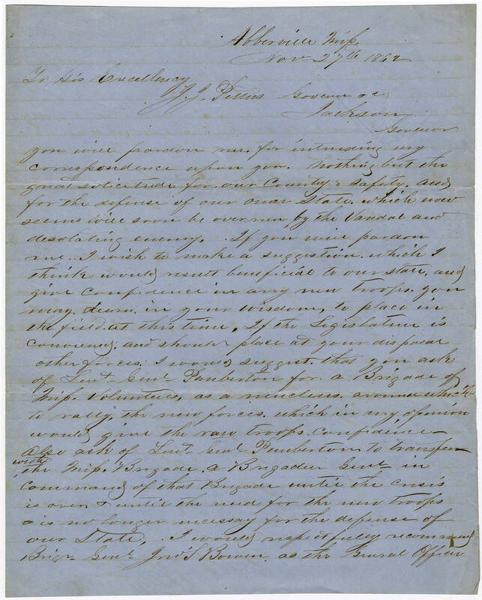 Abberville Miss.
Nov 27th 1862
To His Excellency
J. J. Pettus Governor &c
Jackson
Governor
you will pardon me, for intruding my
correspondence upon you. Nothing but the
great solicitude for our Country's Safety, and
for the defense of our dear State, which now
seems will soon be overrun by the Vandal and
desolating enemy. If you will pardon
me. I wish to make a suggestion which I
think would result beneficial to our state, and
give confidence in any new troops you
may deem, in your wisdom, to place in
the field at this time. If the Legislature is
convened, and should place at your disposal
other forces, I would suggest, that you ask
of Lieut Genl Pemberton for a Brigade of
Miss. Volunteers, as a nucleus, around which
to rally, the new forces, which in my opinion
would give the raw troops confidence
Also ask of Lieut Genl Pemberton to transfer
with
the Miss. Brigade, a Brigadier Genl in
command of that Brigade until the crisis
is over & until the need for the new troops
is no longer necessary for the defense of
our State. I would respectfully recommend
Brigr Genl Jno S Bowen, as the General Officer